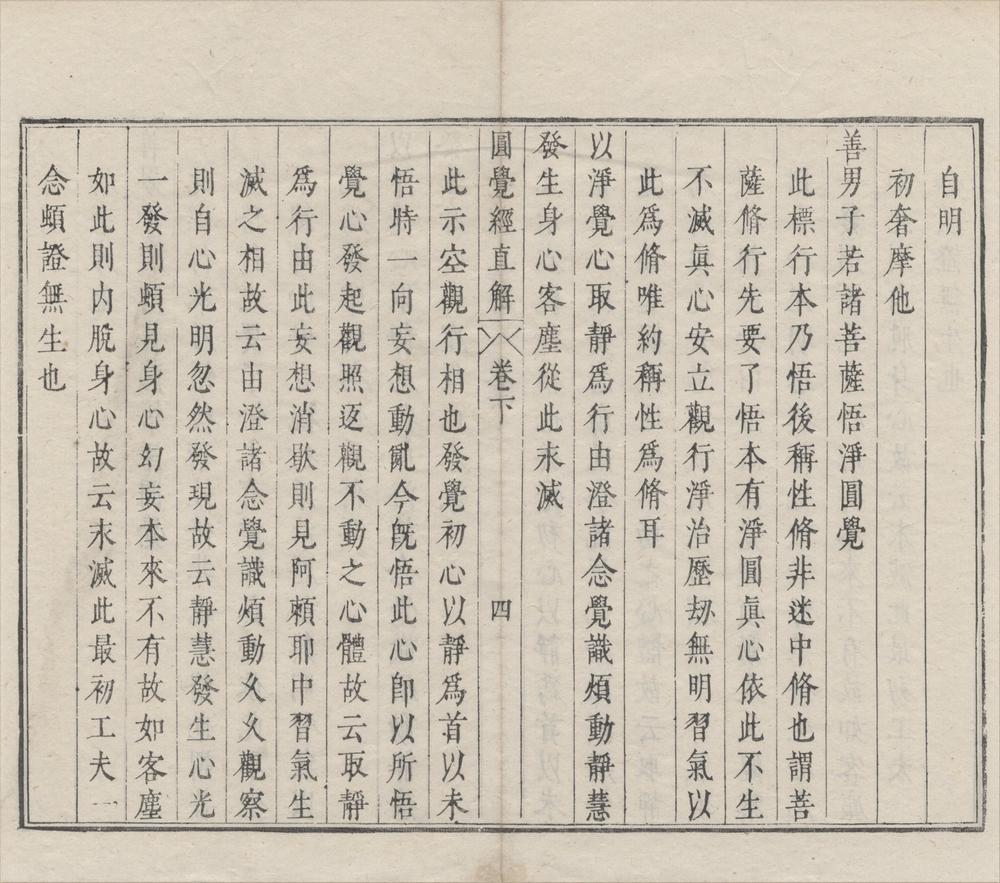 自明
初奢摩他
善男子若諸菩薩悟淨圓覺
此標行本乃悟後稱性脩非迷中脩也謂菩
薩脩行先要了悟本有淨圓眞心依此不生
不滅眞心安立觀行淨治歷劫無明習氣以
此爲脩唯約稱性爲脩耳
以淨覺心取靜爲行由澄諸念覺識煩動靜慧
發生身心客塵從此永滅
圓覺經直解 卷下 四
此示空觀行相也發覺初心以靜爲首以未
悟時一向妄想動亂今既悟此心卽以所悟
覺心發起觀照返觀不動之心體故云取靜
爲行由此妄想消歇則見阿賴耶中習氣生
滅之相故云由澄諸念覺識煩動久久觀察
則自心光明忽然發現故云靜慧發生心光
一發則頓見身心幻妄本來不有故如客塵
如此則内脫身心故云永滅此最初工夫一
念頓證無生也